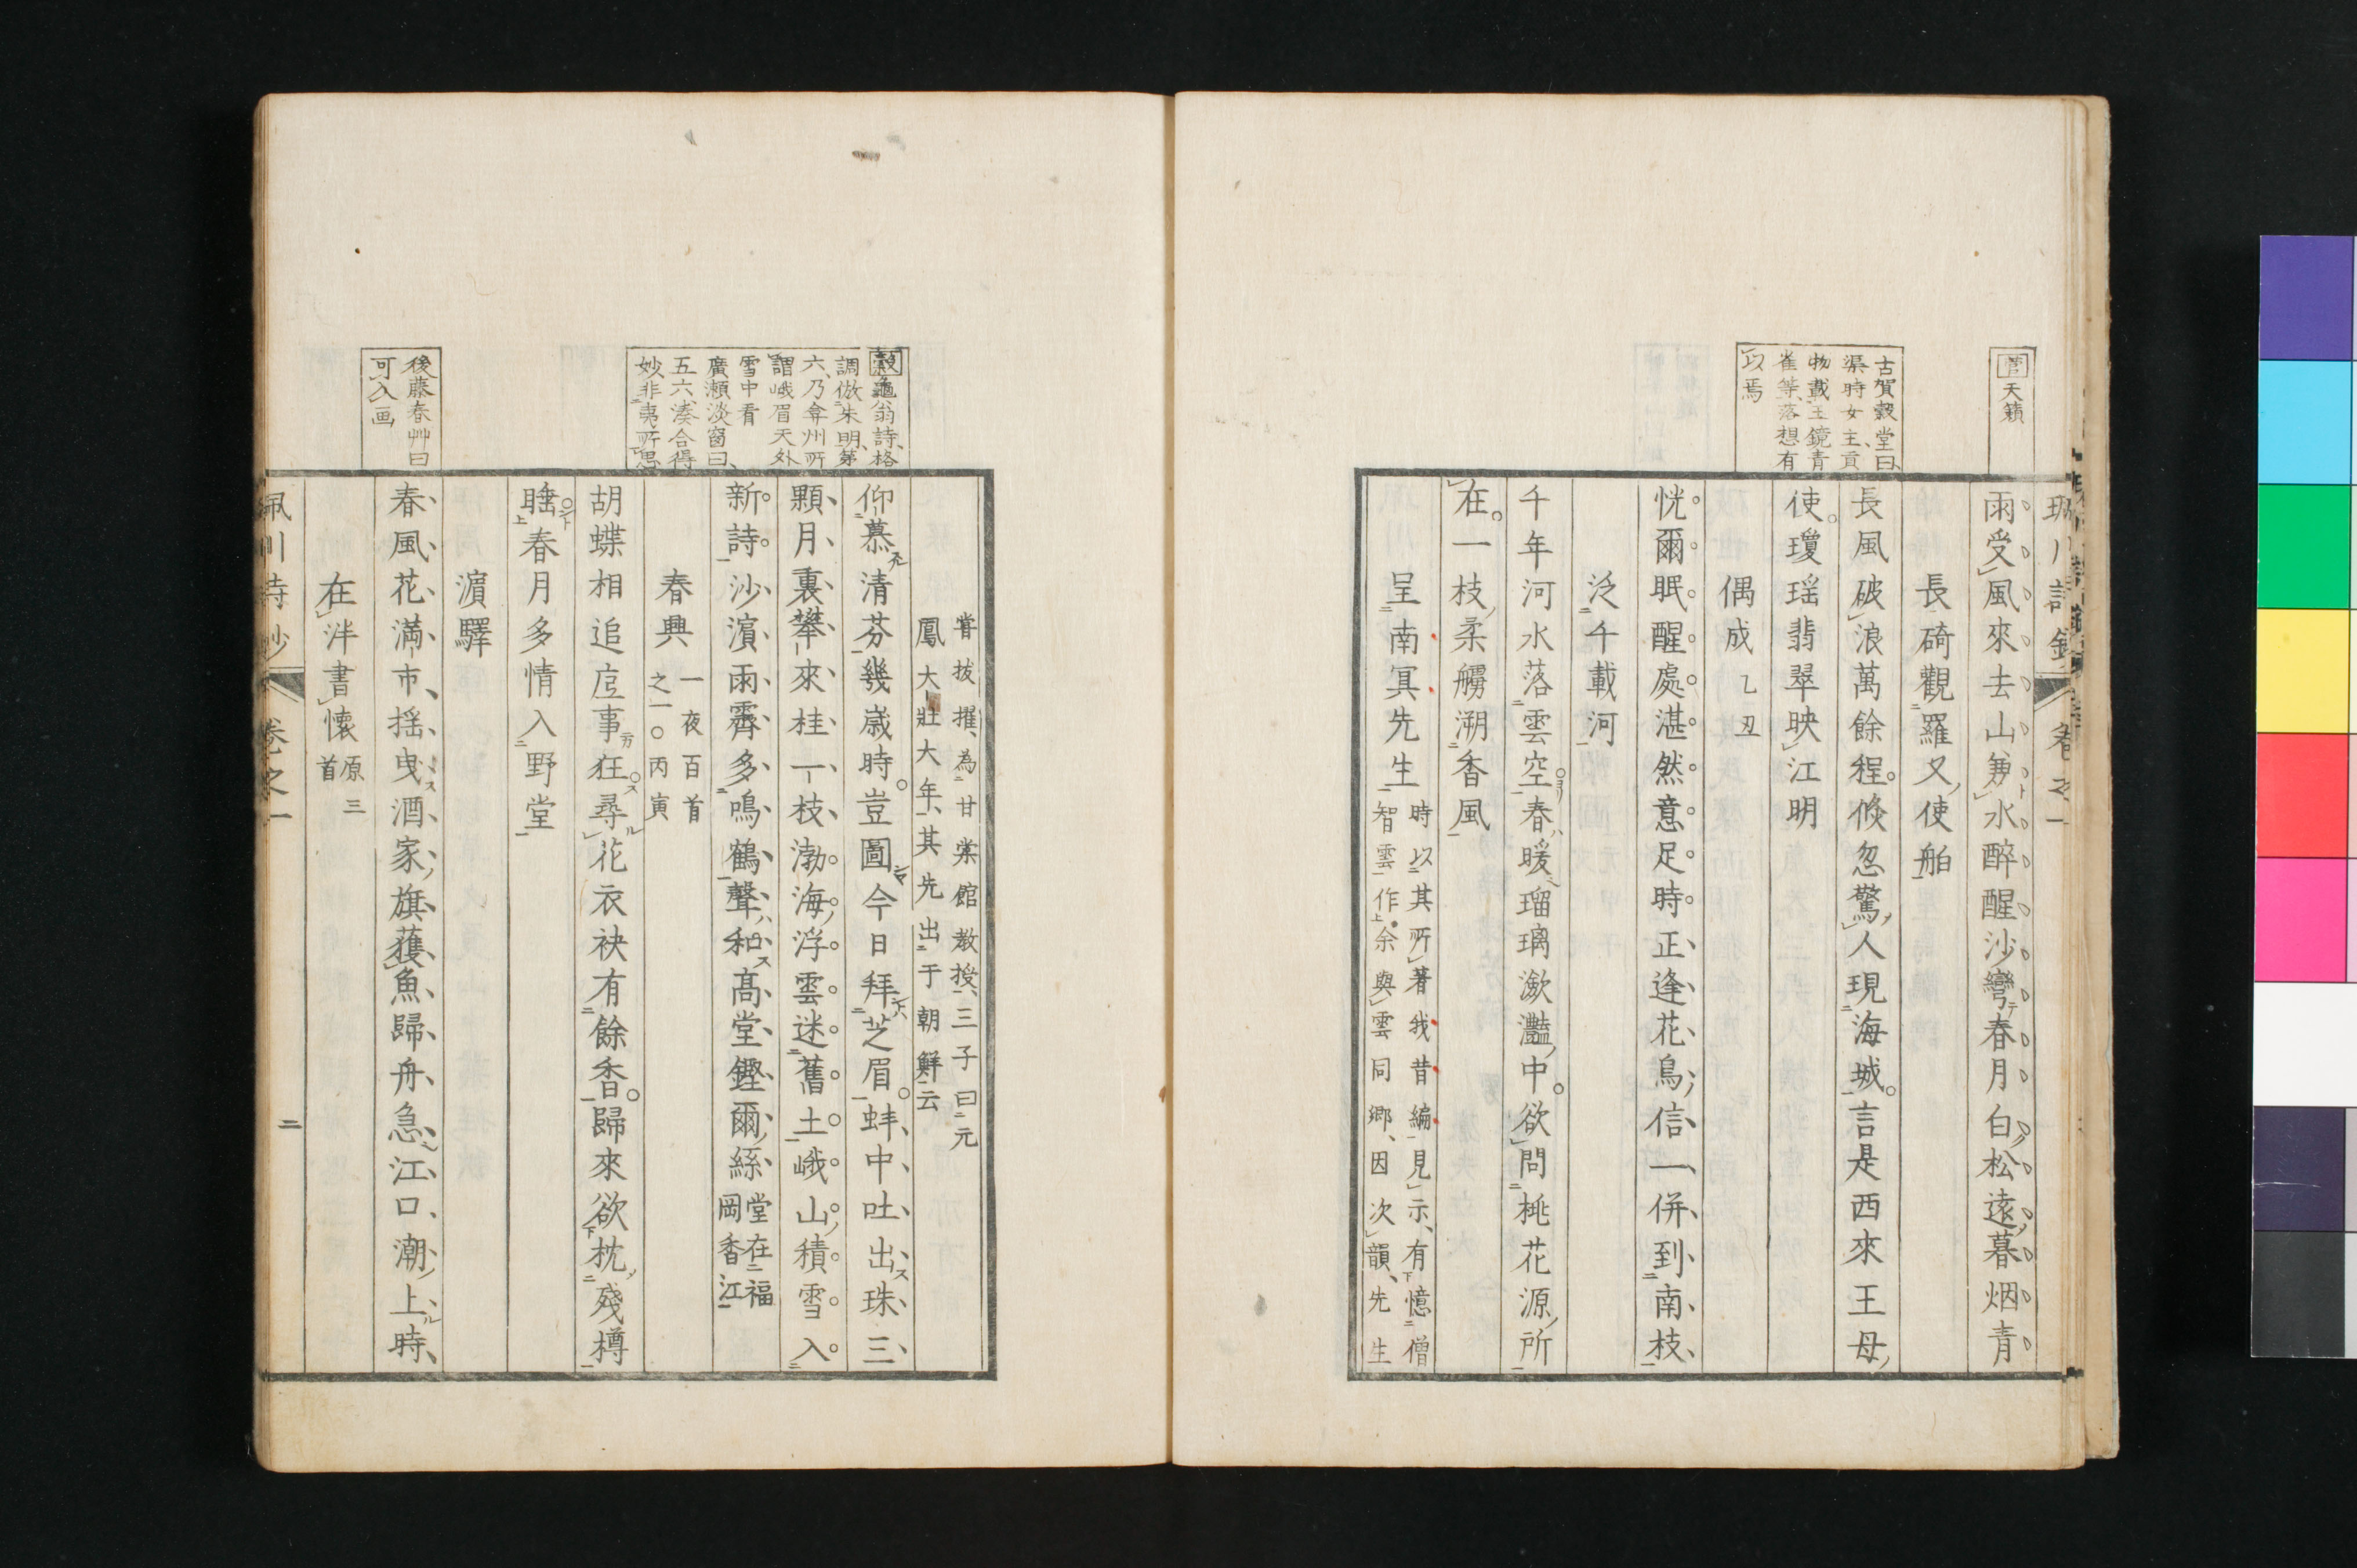 珮川詩鈔
卷之一
菅天籟
雨受風來去山夢水醉醒沙彎春月白松遠暮烟青
長碕觀羅叉使舶
古賀穀堂曰
渠時女主貢
物載玉鏡青
雀等落想有
以焉
長風破浪萬餘程倏忽驚人現海城言是西來王母
使瓊瑶翡翠映江明
偶成 乙丑
恍爾眠醒處湛然意足時正逢花鳥信一併到南枝
泛千載河
千年河水落雲空春暖瑠璃瀲灩中欲問桃花源所
在一枝柔艣溯香風
呈南冥先生 時以其所著我昔編見示有憶僧
智雲作余與雲同鄉因次韻先生
嘗拔擢為甘棠館教授三子曰元
鳳大壯大年其先出于朝鮮云
穀龜翁詩格
調倣朱明第
六乃弇州所
謂峨眉天外
雪中看
廣瀬淡窗曰
五六湊合得
妙非夷所思
仰慕清芬幾歲時豈圖今日拜芝眉蚌中吐出珠三
顆月裏攀來桂一枝渤海浮雲迷舊土峨山積雪入
新詩沙濱雨霽多鳴鶴聲和高堂鏗爾絲 堂在福
岡香江
春興 一夜百首
之一〇丙寅
胡蝶相追底事狂尋花衣袂有餘香歸來欲枕殘樽
睡春月多情入野堂
濵驛
後藤春艸曰
可入画
春風花滿市揺曳酒家旗蕿魚歸舟急江口潮上時
在泮書懷 原三
首
珮川詩鈔
卷之一
二